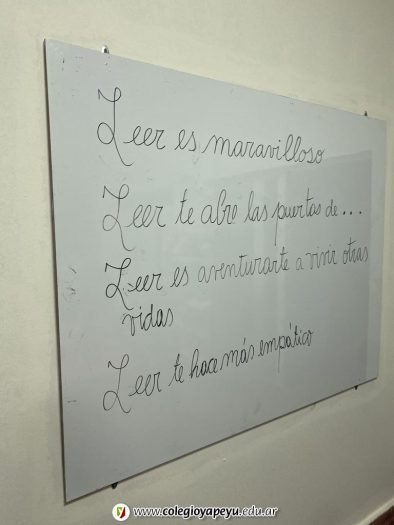 Leer es maravilloso
Leer te abre las puertas de...
Leer es aventurarte a vivir otras
vidas
Leer te hace más empático
www.colegioyapeyu.edu.ar